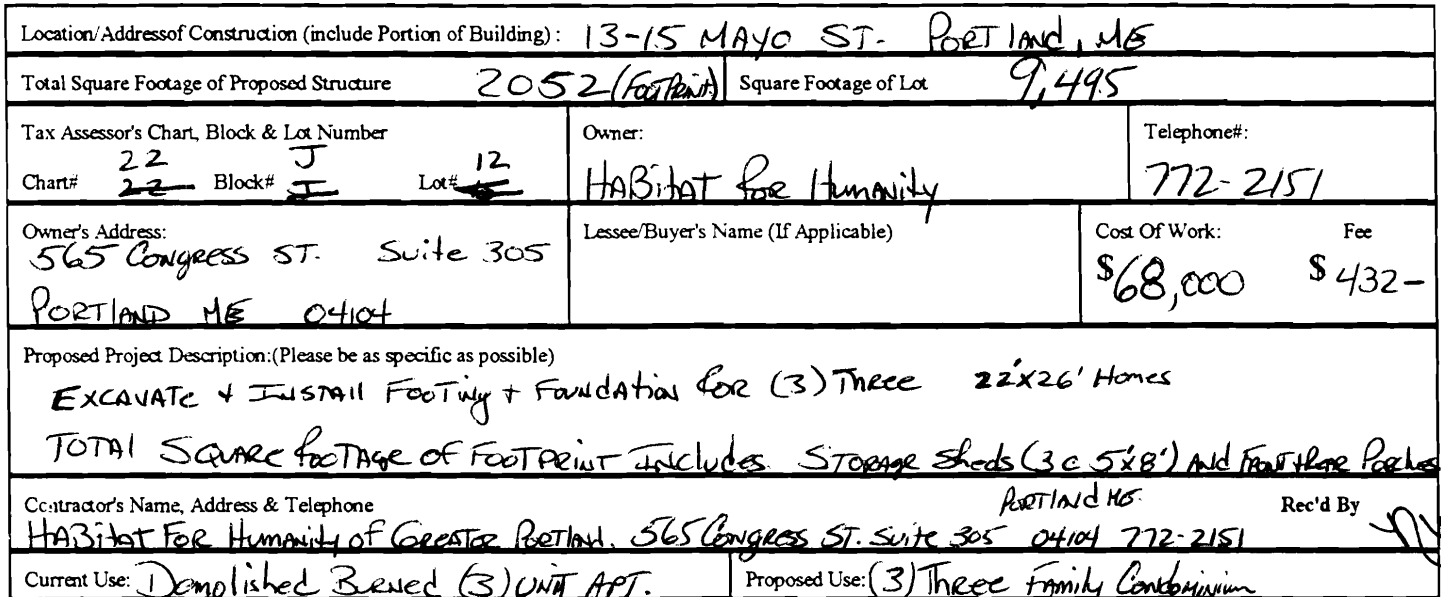 Location/Addressof Construction (include Portion of Building): 13-15 MAYO ST. PORTLAND, ME
Total Square Footage of Proposed Structure 2052 (FootPrint) Square Footage of Lot 9,495
Tax Assessor's Chart, Block & Lot Number Owner: Telephone#:
22 J 12
Chart# 22 Block# I Lot# HABitAT for Humanity 772-2151
Owner's Address: Lessee/Buyer's Name (If Applicable) Cost Of Work: Fee
565 Congress ST. Suite 305 $68,000 $432-
PORTLAND ME 04104
Proposed Project Description:(Please be as specific as possible)
EXCAVATE + INSTALL FooTing + FoundAtion for (3) Three 22'x26' Homes
TOTAL SQUARE footAge OF FOOTPRINT Includes. STORAGE Sheds (3 @ 5'x8') And Front + Rear Porches
Contractor's Name, Address & Telephone PORTLAND ME. Rec'd By
HABitat For Humanity of Greater Portland. 565 Congress ST. Suite 305 04104 772-2151
Current Use: Demolished Burned (3) UNIT APT. Proposed Use: (3) Three Family Condominium